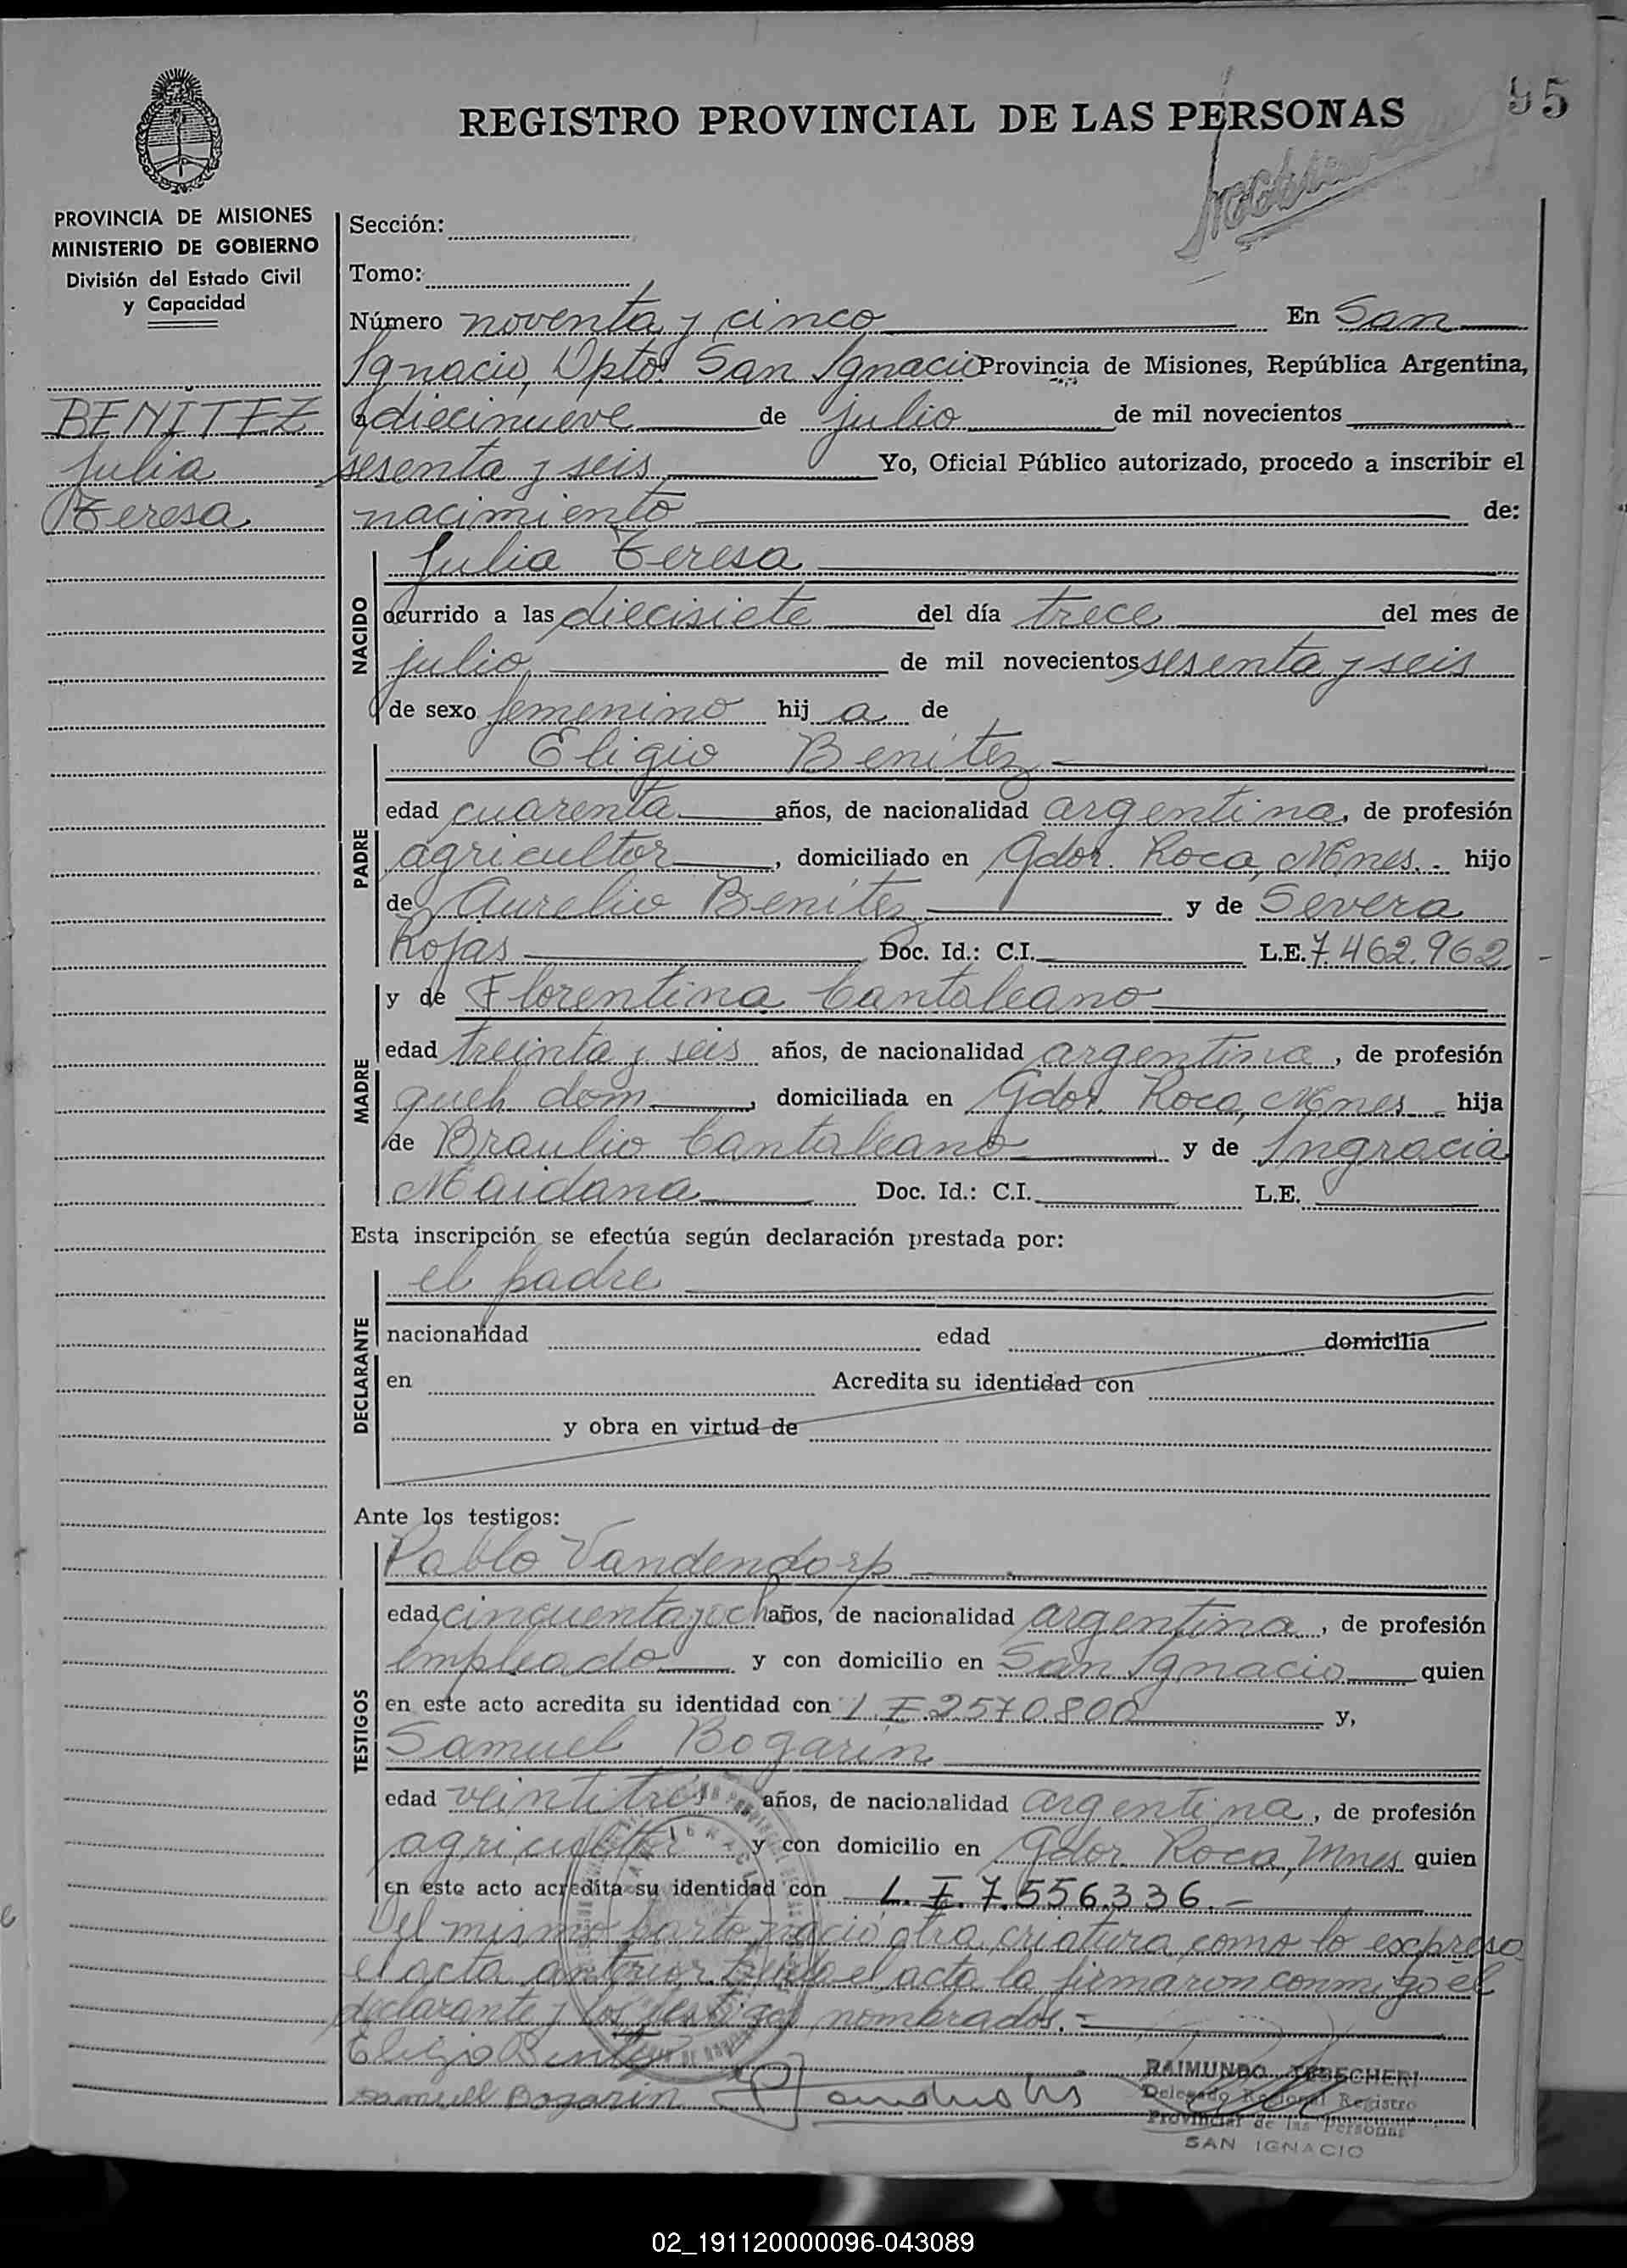 95
REGISTRO PROVINCIAL DE LAS PERSONAS
PROVINCIA DE MISIONES
MINISTERIO DE GOBIERNO
División del Estado Civil
y Capacidad
BENITEZ
Julia
Teresa
Sección:
Tomo:
Número noventa y cinco En San
Ignacio, Dpto. San Ignacio Provincia de Misiones, República Argentina,
a diecinueve de julio de mil novecientos
sesenta y seis Yo, Oficial Público autorizado, procedo a inscribir el
nacimiento de:
NACIDO
Julia Teresa
ocurrido a las diecisiete del día trece del mes de
julio de mil novecientos sesenta y seis
de sexo femenino hij a de
PADRE
Eligio Benitez
edad cuarenta años, de nacionalidad argentina, de profesión
agricultor, domiciliado en Gdor. Roca, Mnes. hijo
de Aurelio Benítez y de Severa
Rojas Doc. Id.: C.I. L.E. 7.462.962
MADRE
y de Florentina Cantaleano
edad treinta y seis años, de nacionalidad argentina, de profesión
queh. dom., domiciliada en Gdor. Roca, Mnes hija
de Braulio Cantaleano y de Ingracia
Maidana Doc. Id.: C.I. L.E.
Esta inscripción se efectúa según declaración prestada por:
DECLARANTE
el padre
nacionalidad edad domicilia
en Acredita su identidad con
y obra en virtud de
Ante los testigos:
TESTIGOS
Pablo Vandendorp
edad cincuenta y och años, de nacionalidad argentina, de profesión
empleado y con domicilio en San Ignacio quien
en este acto acredita su identidad con L.E. 2570.800 y,
Samuel Bogarin
edad veintitrés años, de nacionalidad argentina, de profesión
agricultor y con domicilio en Gdor. Roca, Mnes quien
en este acto acredita su identidad con L.E. 7.556.336.-
Del mismo parto nació otra criatura como lo expresa
el acta anterior. Leída el acta la firmaron conmigo el
declarante y los testigos nombrados.-
Eligio Benitez
Samuel Bogarin
RAIMUNDO TEBECHERI
Delegado Regional Registro
Provincial de las Personas
SAN IGNACIO
02_191120000096-043089